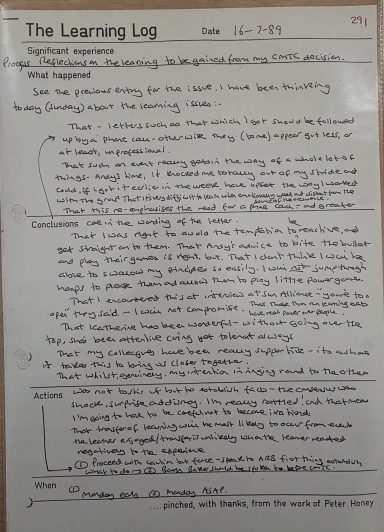 291
The Learning Log Date 16-7-89
Significant experience
Process Reflections on the learning to be gained from my CMTC decision.
What happened
See the previous entry for the issue. I have been thinking
today (Sunday) about the learning issues:-
That - letters such as that which I got should be followed
up by a phone call - otherwise they (tone) appear gutless, or
at least, unprofessional.
That such an event really gets in the way of a whole lot of
things - Andy's time, it knocked me totally out of my stride and
could, if I got it earlier in the week, have upset the way I worked
with the group. That it is very difficult to learn when emotionally upset and distant from the
source of the
That this re-emphasises the need for a phone call - and greater
Conclusions care in the wording of the letter.
That I was right to avoid the temptation to be reactive, and
get straight on to them. That Andy's advice to bite the bullet
and play their games is right, but, that I don't think I will be
able to swallow my principles so easily. I will not jump through
hoops to please them and allow them to play little power games.
That I encountered this at interview at Sun Alliance - "you're too
open" they said - I will not compromise.
That Katherine has been wonderful - without going over the
top, she's been attentive caring yet tolerant always
That my colleagues have been really supportive - its as if
it takes this to bring us closer together.
That whilst, genuinely, my intention in ringing round to the others
Actions was not to but to establish facts - the consensus was
shock, surprise and dismay. I'm really rattled! and that means
I'm going to have to be careful not to become irrational
That transfer of learning will be most likely to occur from events
the learner enjoyed / transfer unlikely when the learner reacted
negatively to the experience
① Proceed with caution but force - speak to ARB first thing establish
what to do → ② Barry should be spoken to before CMTC.
When ① Monday early ② Monday ASAP.
....pinched, with thanks, from the work of Peter Honey